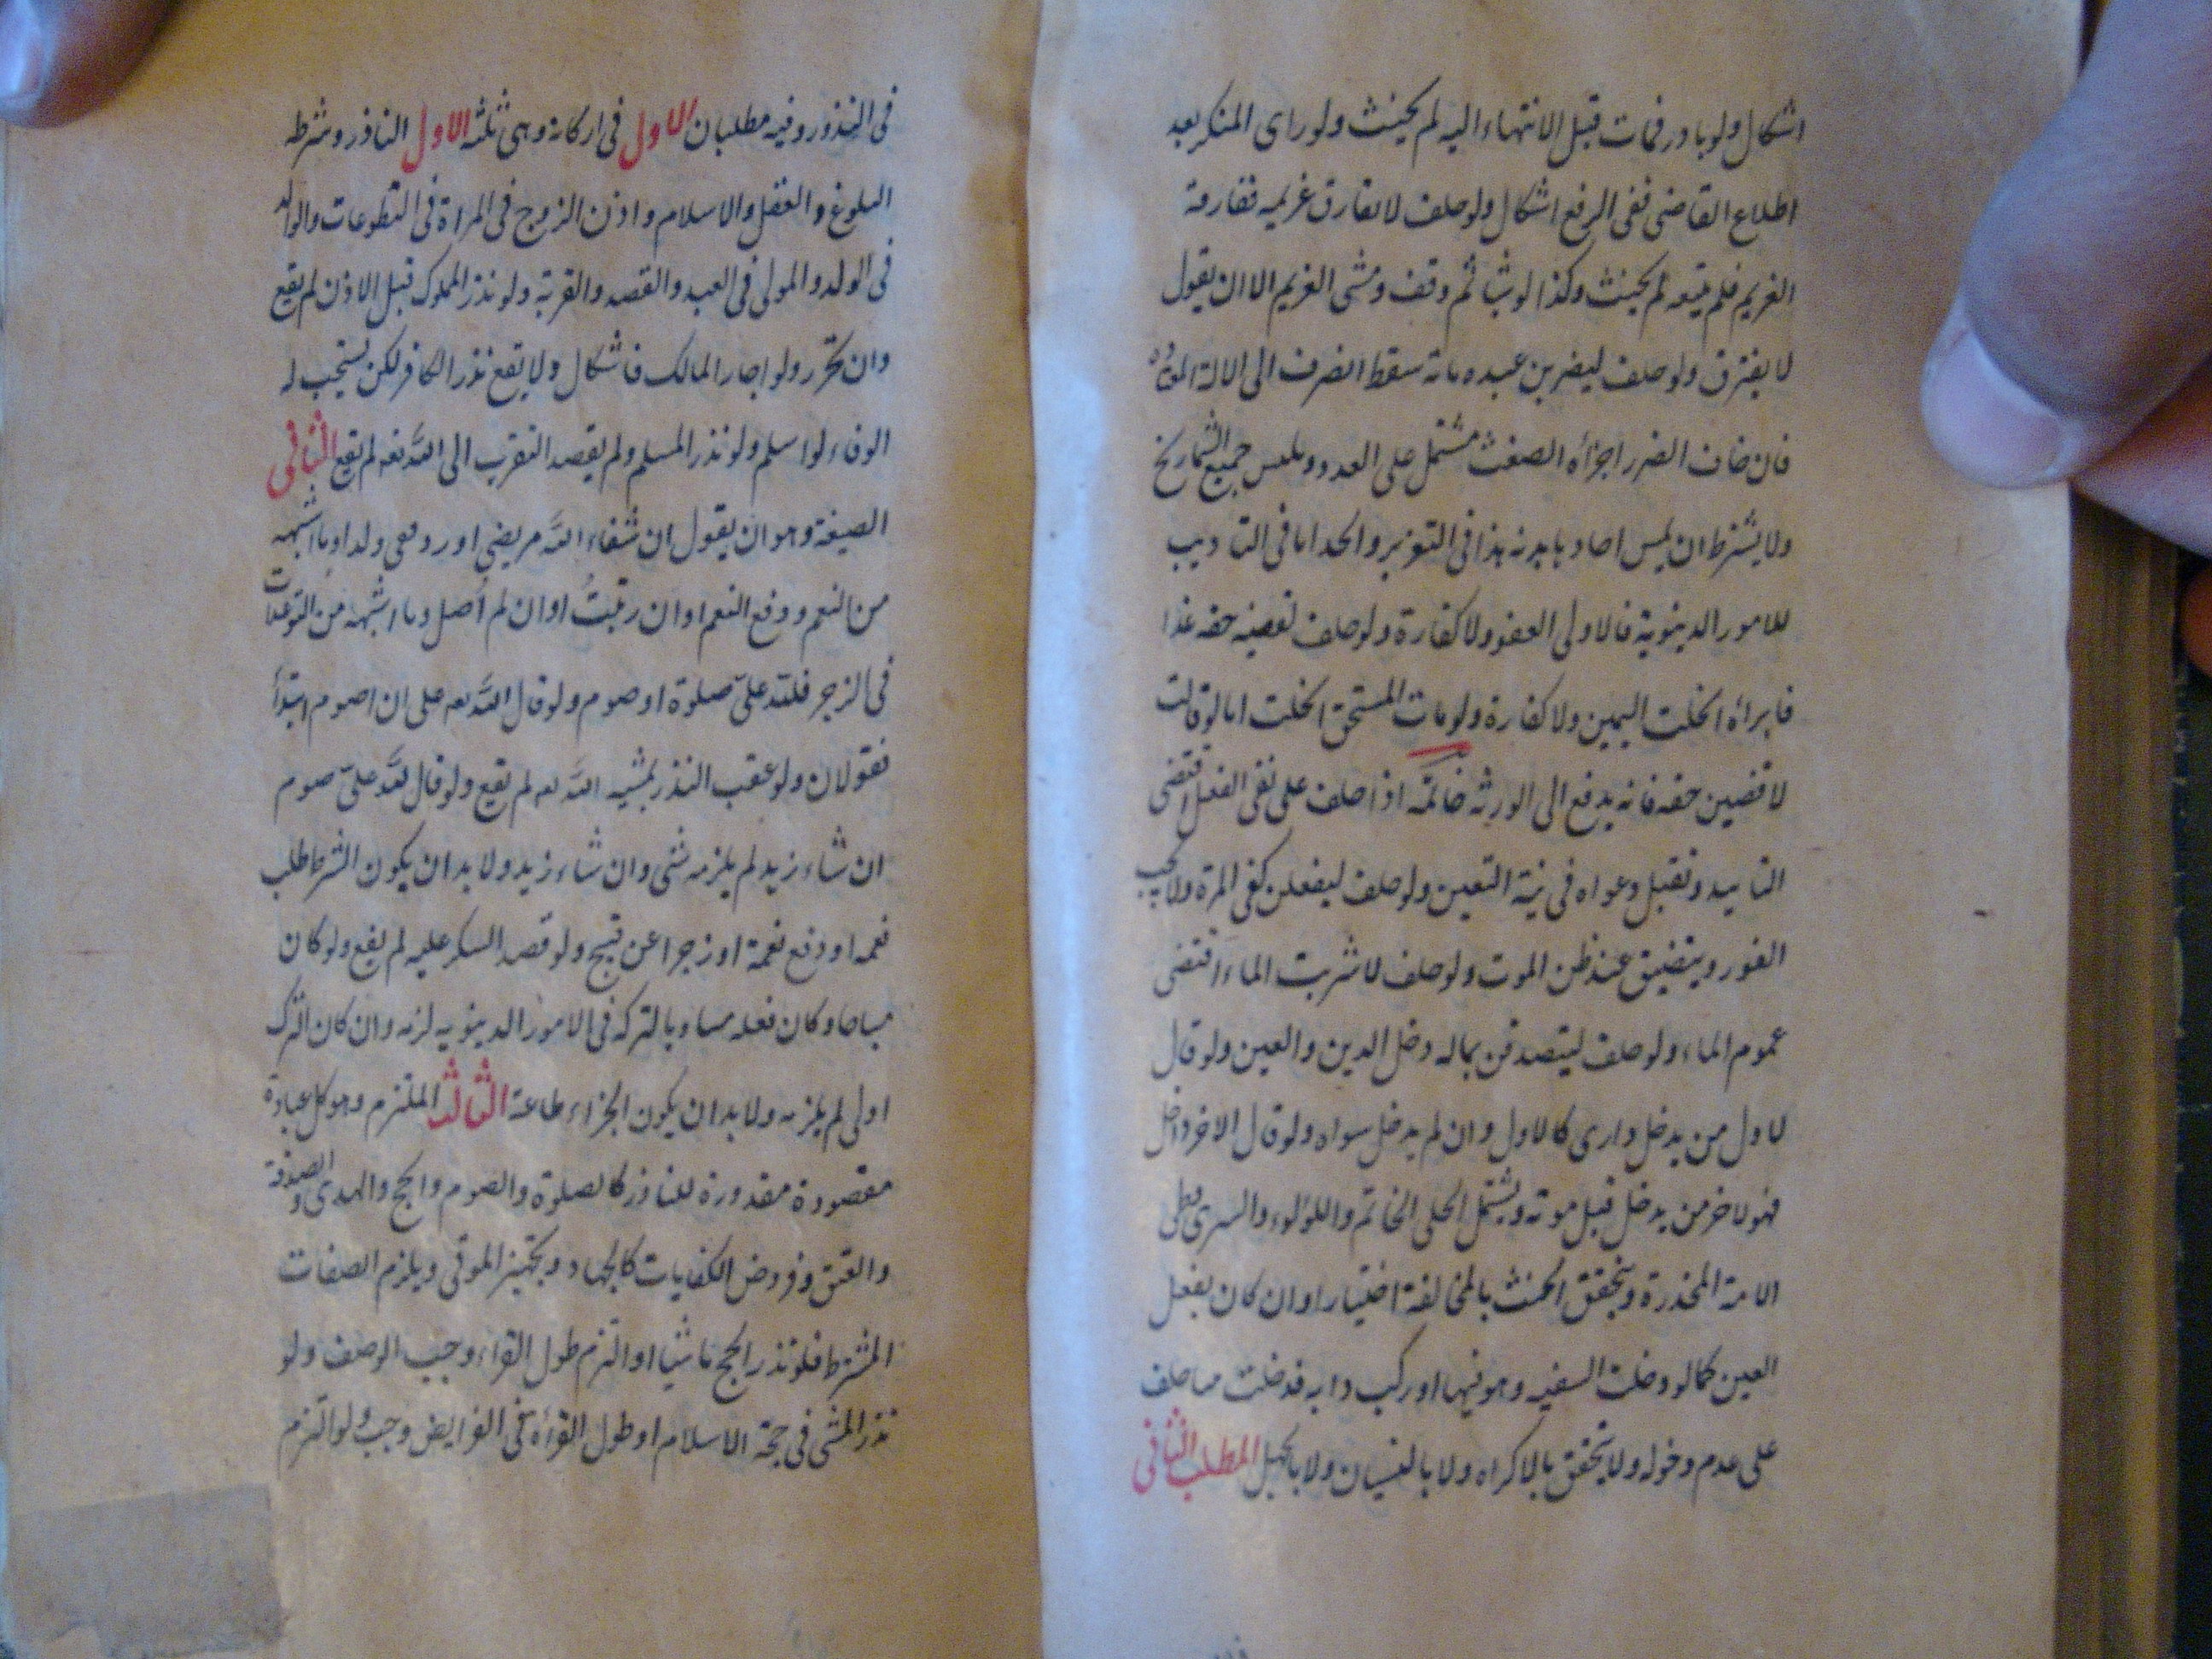 اشكال ولو بادر فمات قبل الانتهاء اليه لم يحنث ولو راى المنكر بعد
اطلاع القاضى ففى الرفع اشكال ولو حلف لا يفارق غريمه ففارقه
الغريم فلم يتبعه لم يحنث وكذا لو ثم وقف ومشى الغريم الا ان يقول
لا يفترق ولو حلف ليضربن عبده مائة سقط انصرف الى الالة
فان خاف الضرر اجزأه الضغث مشتمل على العدد و جميع الشماريخ
ولا يشترط ان يمس احادها بدنه هذا فى التعزير والحد اما فى التاديب
للامور الدينوية فالاولى العفو ولا كفارة ولو حلف حقه غدا
فابرأه انحلت اليمين ولا كفارة ولو مات المستحق انحلت اما لو قالت
لاقضين حقه فانه يدفع الى الورثه خاتمه اذا حلف على نفى الفعل اقتضى
التابيد وتقبل دعواه فى نية التعيين ولو حلف ليفعلن كفى المرة ولا يجب
الفور ويتضيق عند ظن الموت ولو حلف لا شربت الماء اقتضى
عموم الماء ولو حلف ليتصدقن بماله دخل الدين والعين ولو قال
لاول من يدخل دارى كا لاول وان لم يدخل سواه ولو قال الاخر داخل
فهو لاخر من يدخل قبل موته ويشتمل الحلى الخاتم واللؤلوء والسرى وطى
الامة المخدرة ويتحقق الحنث بالمخالفة اختيارا وان كان بفعل
العين كما لو دخلت السفينه وهو فيها او ركب دابه فدخلت مما حلف
على عدم دخوله ولا يتحقق بالاكراه ولا بالنسيان ولا بالجهل المطلب الثانى
فى النذور وفيه مطلبان الاول فى اركانه وهى ثلثه الاول الناذر وشرطه
البلوغ و العقل والاسلام واذن الزوج فى المراة فى التطوعات والوالد
فى الولد والمولى فى العبد والقصد والقربة ولو نذر المملوك قبل الاذن لم يقع
وان تحرر ولو اجاز المالك فاشكال ولا يقع نذر الكافر لكن يستحب له
الوفاء لو اسلم ولو نذر المسلم ولم يقصد التقرب الى الله تعه لم يقع الثانى
الصيغة وهو ان يقول ان شفاء الله مريضى او رد ولدا وما اشبهه
من النعم ودفع النعم او ان رغبت او ان لم اصل وما اشبهه من التوعدات
فى الزجر فلله على صلوة او صوم ولو قال الله تعه على ان اصوم ابتدأ
فقولان ولو عقب النذر بمشيه الله تعه لم يقع ولو قال لله على صوم
ان شاء زيد لم يلزمه شى وان شاء زيد ولا بد ان يكون الشرط طلب
نعمه او دفع نقمة او زجرا عن قبيح ولو قصد الشكر عليه لم يقع ولو كان
مباحا وكان فعله مساويا لتركه فى الامور الدينويه لزمه وان كان الترك
اولى لم يلزمه ولا بد ان يكون الجزاء طاعة الثالث الملتزم وهو كل عبادة
مقصودة مقدورة للناذر كالصلوة والصوم والحج والهدى والصدقة
والعتق وفروض الكفايات كالجهاد وتجهيز الموتى ويلزم الصفات
المشترط فلو نذر الحج ماشيا او التزم طول القراءة وجب الوصف ولو
نذر المشى فى حجة الاسلام او طول القرأة فى الفرايض وجب ولو التزم